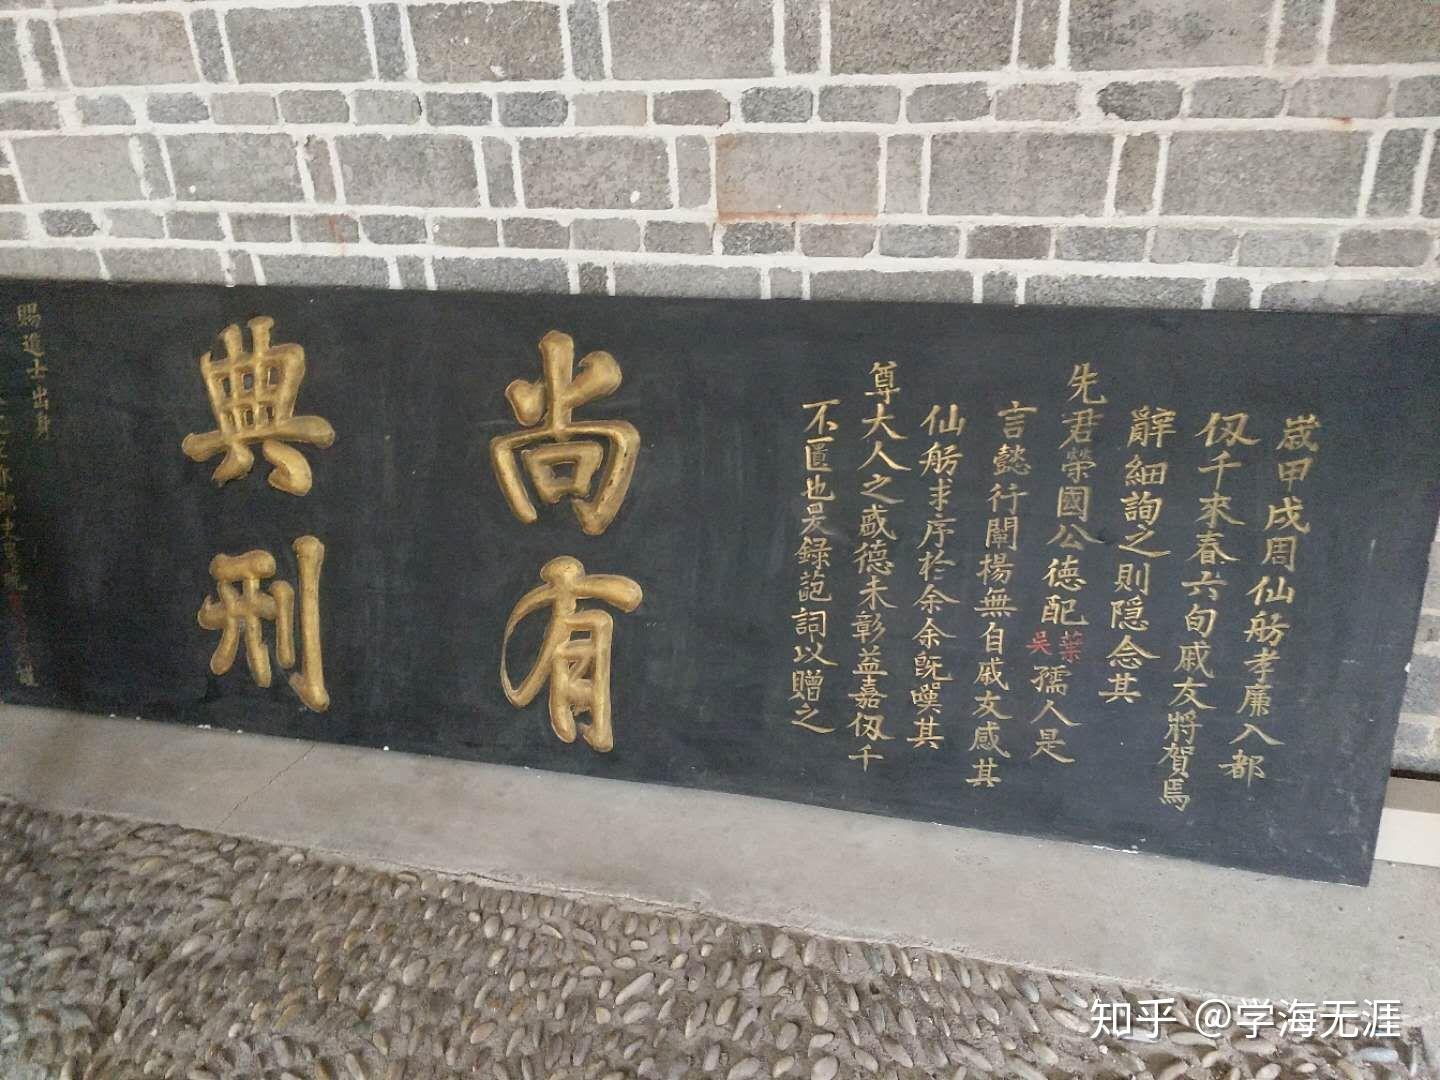 歲甲戌周仙舫孝廉入都
仭千來春六旬戚友將賀焉
辭細詢之則隱念其
先君榮國公德配葉吳孺人是
言懿行闡揚無自戚友感其
仙舫求序於余余旣嘆其
尊大人之盛德未彰益嘉仭千
不匱也爰錄葩詞以贈之
尚有
典刑
賜進士出身
知乎 @学海无涯